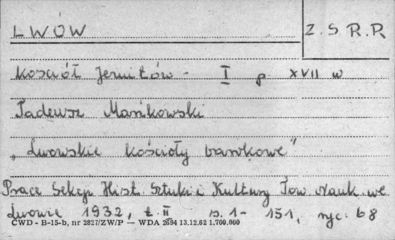 LWÓW
Z.S.R.R.
Kościół Jezuitów - I p XVII w
Tadeusz Mańkowski
„Lwowskie kościoły barokowe"
Prace Sekcji Hist. Sztuki i Kultury Tow. Nauk. we
Lwowie 1932, t. II s. 1 - 151, ryc. 68
CWD - B-15-b, nr 2827/ZW/P — WDA 2694 13.12.62 1.700.000